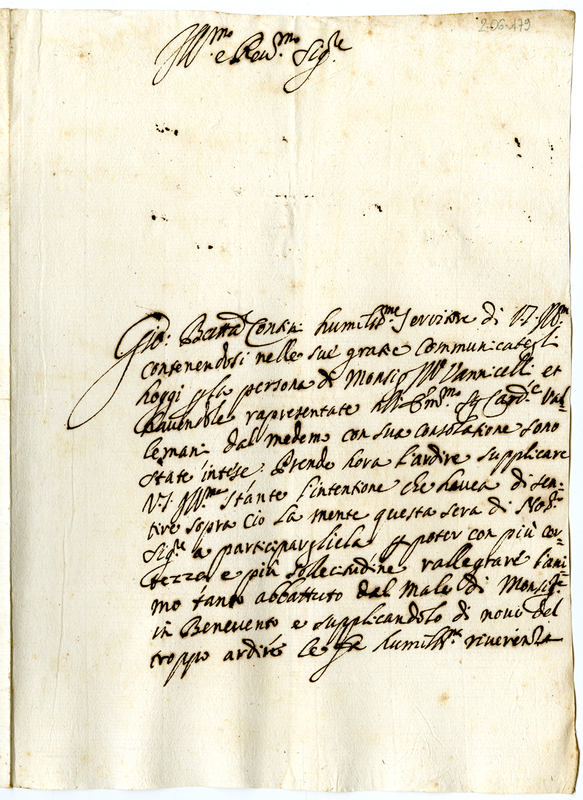 2-06-179
Ill.mo e Rev.mo Sig.re
Gio: Batta Contin humiliss.me servitore di V.S. Ill.m
contenendosi nelle sue gratie communicategli
hoggi p la persona di Monsig. Ill Vannicelli et
havendole rapresentate all Em.mo Sig Card.e Val=
lemani dal medemo con sua consolatione sono
state intese. Prende hora l'ardire supplicare
V.S. Ill.ma stante l'intentione che havea di sen=
tire sopra ciò la mente questa sera di No.
Sig.re a participargliela p poter con più cer=
tezza e più sollecitudine rallegrare l'ani=
mo tanto abbattuto dal male di Monsig.re
in Benevento e supplicandolo di novo del
troppo ardire le fa humiliss.me riverenza